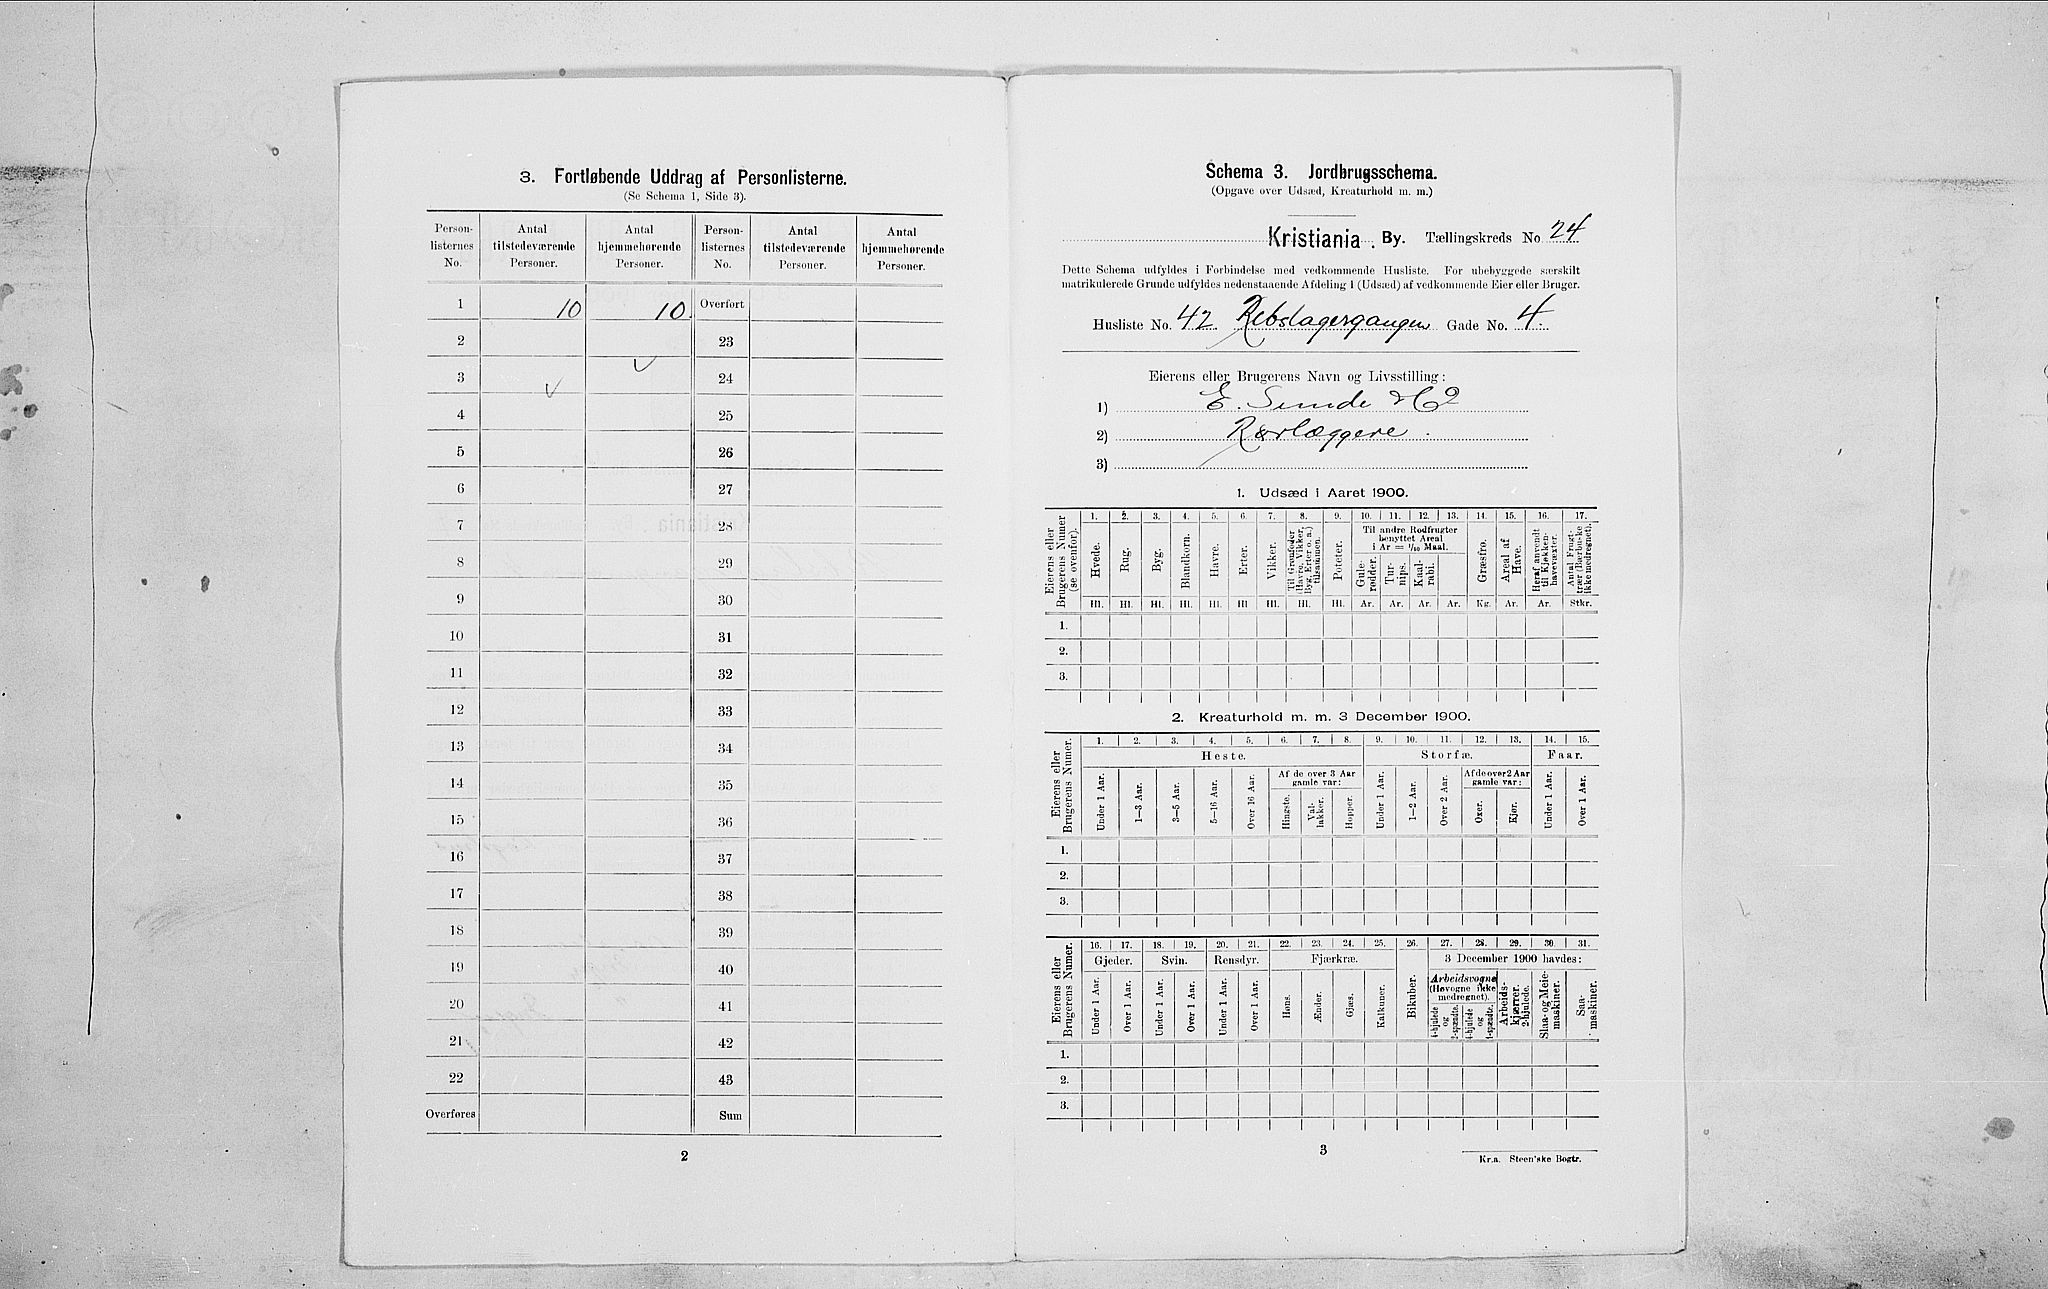 3. Fortløbende Uddrag af Personlisterne.
(Se Schema 1, Side 3).
Person-listernes No. | Antal tilstedeværende Personer. | Antal hjemmehørende Personer. | Person-listernes No. | Antal tilstedeværende Personer. | Antal hjemmehørende Personer.
1 10 10. Overført
2 23
3 24
4 25
5 26
6 27
7 28
8 29
9 30
10 31
11 32
12 33
13 34
14 35
15 36
16 37
17 38
18 39
19 40
20 41
21 42
22 43
Overføres Sum
2
Schema 3. Jordbrugsschema.
(Opgave over Udsæd, Kreaturhold m. m.)
Kristiania. By. Tællingskreds No 24
Dette Schema udfyldes i Forbindelse med vedkommende Husliste. For ubebyggede særskilt
matrikulerede Grunde udfyldes nedenstaaende Afdeling 1 (Udsæd) af vedkommende Eier eller Bruger.
Husliste No. 42. Rebslagergangen Gade No. 4.
Eierens eller Brugerens Navn og Livsstilling:
1) E. Sunde & Co
2) Rørlæggere.
3)
1. Udsæd i Aaret 1900.
Eierens eller Brugerens Numer (se ovenfor).
1. 2. 3. 4. 5. 6. 7. 8. 9. 10. 11. 12. 13. 14. 15. 16. 17.
Hvede. Rug. Byg. Blandkorn. Havre. Erter. Vikker. Til Grønfoder (Havre, Vikker, Byg, Erter o. a.) tilsammen. Poteter.
Til andre Rodfrugter benyttet Areal i Ar = 1/10 Maal.
Gule-rødder. Tur-nips. Kaal-rabi. Græsfrø. Areal af Have. Heraf anvendt til Kjøkken-havevæxter. Antal Frugt-trær (Bærbuske ikke medregnet).
Hl. Hl. Hl. Hl. Hl. Hl Hl. Hl. Hl. Ar. Ar. Ar. Ar. Kg. Ar. Ar. Stkr.
1.
2.
3.
2. Kreaturhold m. m. 3 December 1900.
Eierens eller Brugerens Numer.
1. 2. 3. 4. 5. 6. 7. 8. 9. 10. 11. 12. 13. 14. 15.
Heste. Storfæ. Faar.
Under 1 Aar. 1—3 Aar. 3—5 Aar. 5—16 Aar. Over 16 Aar.
Af de over 3 Aar gamle var:
Hingste. Val-lakker. Hopper.
Under 1 Aar. 1—2 Aar. Over 2 Aar.
Af de over 2 Aar gamle var:
Oxer. Kjør.
Under 1 Aar. Over 1 Aar.
1.
2.
3.
Eierens eller Brugerens Numer.
16. 17. 18. 19. 20. 21. 22. 23. 24. 25. 26. 27. 28. 29. 30. 31.
Gjeder. Svin. Rensdyr. Fjærkræ. 3 December 1900 havdes:
Under 1 Aar. Over 1 Aar. Under 1 Aar. Over 1 Aar. Under 1 Aar. Over 1 Aar. Høns. Ænder. Gjæs. Kalkuner. Bikuber.
Arbeidsvogne (Høvogne ikke medregnet).
4-hjulede og 2-spændte. 4-hjulede og 1-spændte. Arbeids-kjærrer, 2-hjulede. Slaa- og Meie-maskiner. Saa-maskiner.
1.
2.
3.
3
Kr.a. Steen'ske Bogtr.